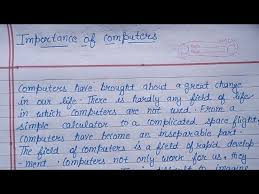 Importance of Computers
Computers have brought about a great change
in our life. There is hardly any field of life
in which computers are not used. From a
simple calculator to a complicated space flight
Computers have become an inseparable part.
The field of computers is a field of rapid develop-
ment. Computers not only work for us, they
difficult to imagine